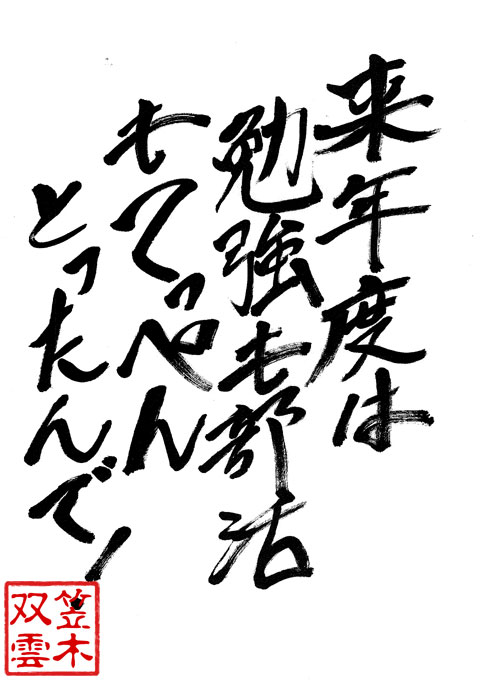 来年度は
勉強も部活
もてっぺん
とったんで!
笠木
双雲